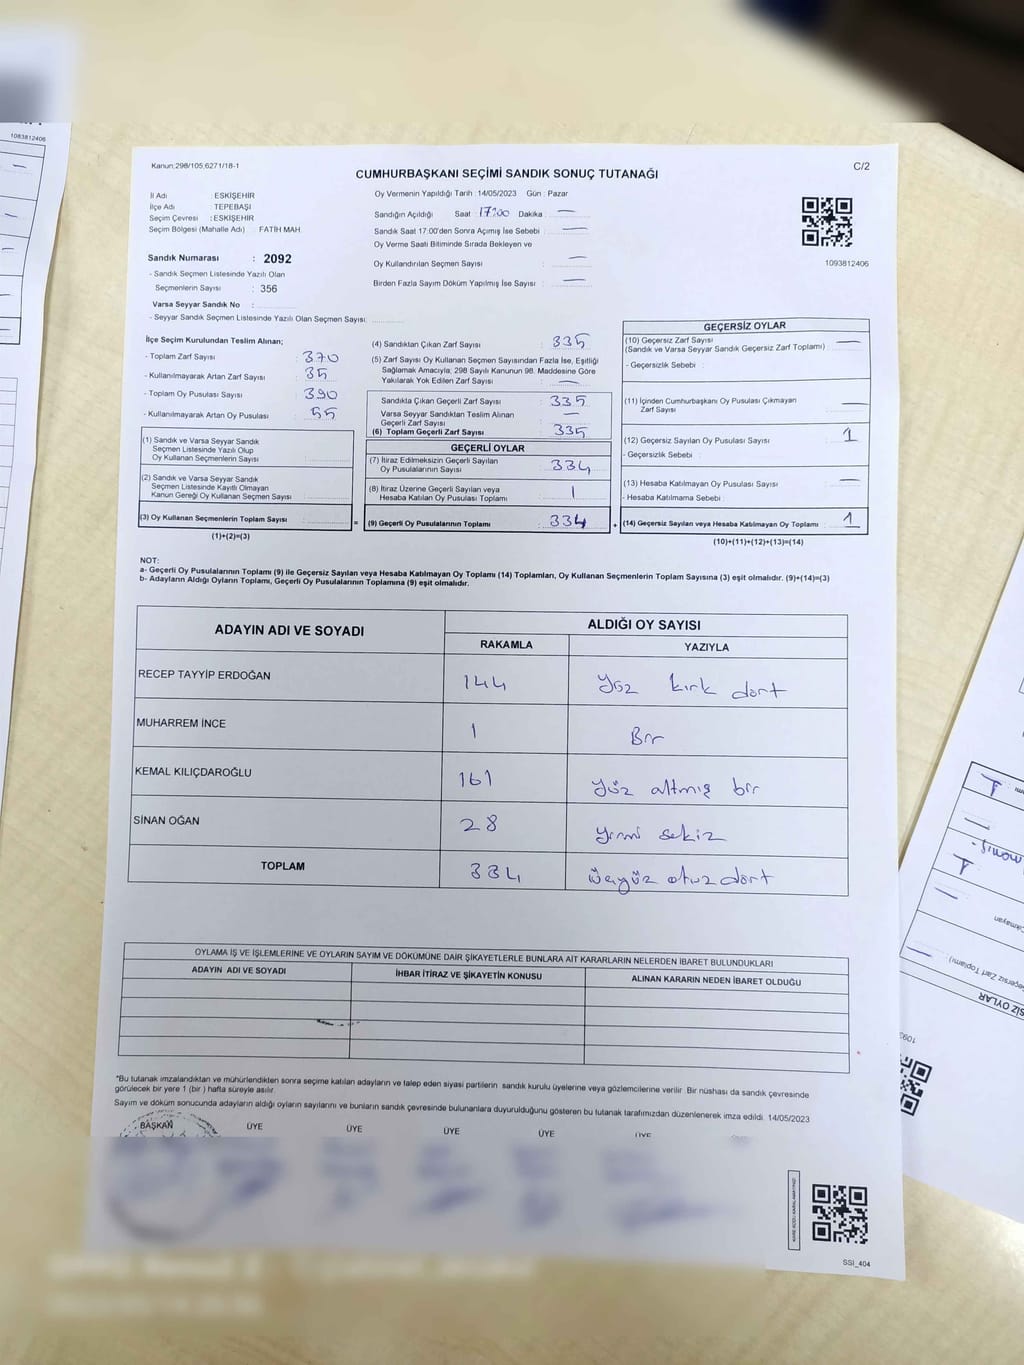 1083812406
Kanun:298/105,6271/18-1
C/2
CUMHURBAŞKANI SEÇİMİ SANDIK SONUÇ TUTANAĞI
İl Adı : ESKİŞEHİR
İlçe Adı : TEPEBAŞI
Seçim Çevresi : ESKİŞEHİR
Seçim Bölgesi (Mahalle Adı) : FATİH MAH.
Oy Vermenin Yapıldığı Tarih : 14/05/2023 Gün : Pazar
Sandığın Açıldığı Saat 17:00 Dakika : —
Sandık Saat 17:00'den Sonra Açımış İse Sebebi : —
Oy Verme Saati Bitiminde Sırada Bekleyen ve
Oy Kullandırılan Seçmen Sayısı : —
Birden Fazla Sayım Döküm Yapılmış İse Sayısı : —
1093812406
Sandık Numarası : 2092
- Sandık Seçmen Listesinde Yazılı Olan
Seçmenlerin Sayısı : 356
Varsa Seyyar Sandık No :
- Seyyar Sandık Seçmen Listesinde Yazılı Olan Seçmen Sayısı:
İlçe Seçim Kurulundan Teslim Alınan;
- Toplam Zarf Sayısı : 370
- Kullanılmayarak Artan Zarf Sayısı : 35
- Toplam Oy Pusulası : 390
- Kullanılmayarak Artan Oy Pusulası : 55
(1) Sandık ve Varsa Seyyar Sandık
Seçmen Listesinde Yazılı Olup
Oy Kullanan Seçmenlerin Sayısı :
(2) Sandık ve Varsa Seyyar Sandık
Seçmen Listesinde Kayıtlı Olmayan
Kanun Gereği Oy Kullanan Seçmen Sayısı :
(3) Oy Kullanan Seçmenlerin Toplam Sayısı : =
(1)+(2)=(3)
(4) Sandıktan Çıkan Zarf Sayısı : 335
(5) Zarf Sayısı Oy Kullanan Seçmen Sayısından Fazla İse, Eşitliği
Sağlamak Amacıyla; 298 Sayılı Kanunun 98. Maddesine Göre
Yakılarak Yok Edilen Zarf Sayısı : —
Sandıkta Çıkan Geçerli Zarf Sayısı : 335
Varsa Seyyar Sandıktan Teslim Alınan
Geçerli Zarf Sayısı : —
(6) Toplam Geçerli Zarf Sayısı : 335
GEÇERLİ OYLAR
(7) İtiraz Edilmeksizin Geçerli Sayılan
Oy Pusulalarının Sayısı : 334
(8) İtiraz Üzerine Geçerli Sayılan veya
Hesaba Katılan Oy Pusulası Toplamı : 1
(9) Geçerli Oy Pusulalarının Toplamı : 334 +
GEÇERSİZ OYLAR
(10) Geçersiz Zarf Sayısı
(Sandık ve Varsa Seyyar Sandık Geçersiz Zarf Toplamı) : —
- Geçersizlik Sebebi :
(11) İçinden Cumhurbaşkanı Oy Pusulası Çıkmayan
Zarf Sayısı : —
(12) Geçersiz Sayılan Oy Pusulası Sayısı : 1
- Geçersizlik Sebebi :
(13) Hesaba Katılmayan Oy Pusulası Sayısı : —
- Hesaba Katılmama Sebebi :
(14) Geçersiz Sayılan veya Hesaba Katılmayan Oy Toplamı : 1
(10)+(11)+(12)+(13)=(14)
NOT:
a- Geçerli Oy Pusulalarının Toplamı (9) ile Geçersiz Sayılan veya Hesaba Katılmayan Oy Toplamı (14) Toplamları, Oy Kullanan Seçmenlerin Toplam Sayısına (3) eşit olmalıdır. (9)+(14)=(3)
b- Adayların Aldığı Oyların Toplamı, Geçerli Oy Pusulalarının Toplamına (9) eşit olmalıdır.
ADAYIN ADI VE SOYADI
ALDIĞI OY SAYISI
RAKAMLA YAZIYLA
RECEP TAYYİP ERDOĞAN 144 yüz kırk dört
MUHARREM İNCE 1 Bir
KEMAL KILIÇDAROĞLU 161 yüz altmış bir
SİNAN OĞAN 28 yirmi sekiz
TOPLAM 334 üçyüz otuz dört
OYLAMA İŞ VE İŞLEMLERİNE VE OYLARIN SAYIM VE DÖKÜMÜNE DAİR ŞİKAYETLERLE BUNLARA AİT KARARLARIN NELERDEN İBARET BULUNDUKLARI
ADAYIN ADI VE SOYADI İHBAR İTİRAZ VE ŞİKAYETİN KONUSU ALINAN KARARIN NEDEN İBARET OLDUĞU
*Bu tutanak imzalandıktan ve mühürlendikten sonra seçime katılan adayların ve talep eden siyasi partilerin sandık kurulu üyelerine veya gözlemcilerine verilir. Bir nüshası da sandık çevresinde
görülecek bir yere 1 (bir ) hafta süreyle asılır.
Sayım ve döküm sonucunda adayların aldığı oyların sayılarını ve bunların sandık çevresinde bulunanlara duyurulduğunu gösteren bu tutanak tarafımızdan düzenlenerek imza edildi. 14/05/2023
BAŞKAN ÜYE ÜYE ÜYE ÜYE ÜYE
SSİ_404